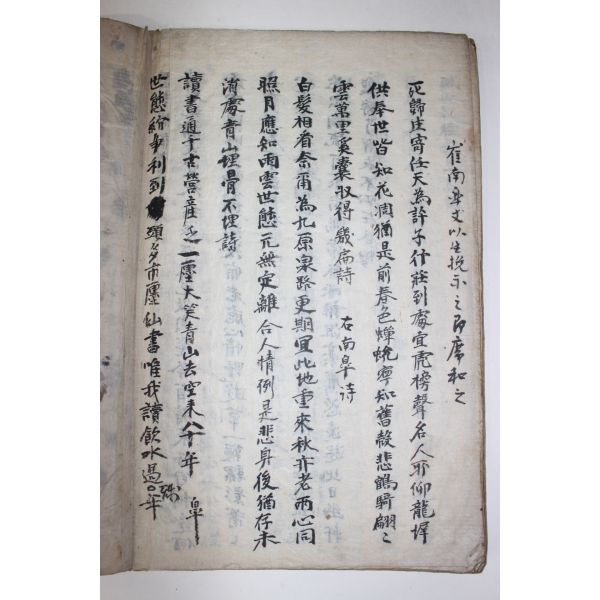 崔南皐丈以生挽示之即席和之
死歸生寄任天為許子行莊到處宜虎榜聲名人所仰龍墀
供奉世皆知花凋猶是前春色蟬蛻寧知舊殼悲鶴騎翩〻
雲萬里奚囊収得幾扁詩 右南皐詩
白髮相看奈爾為九原泉路更期宜此地重來秋亦老兩心同
照月應知雨雲世態元無定離合人情例是悲身後猶存未
消處青山埋骨不埋詩
讀書通千古營產乏一廛大笑青山去空來八十年 皐
世態紛爭利到頭多市廛仙書唯我讀飲水過年